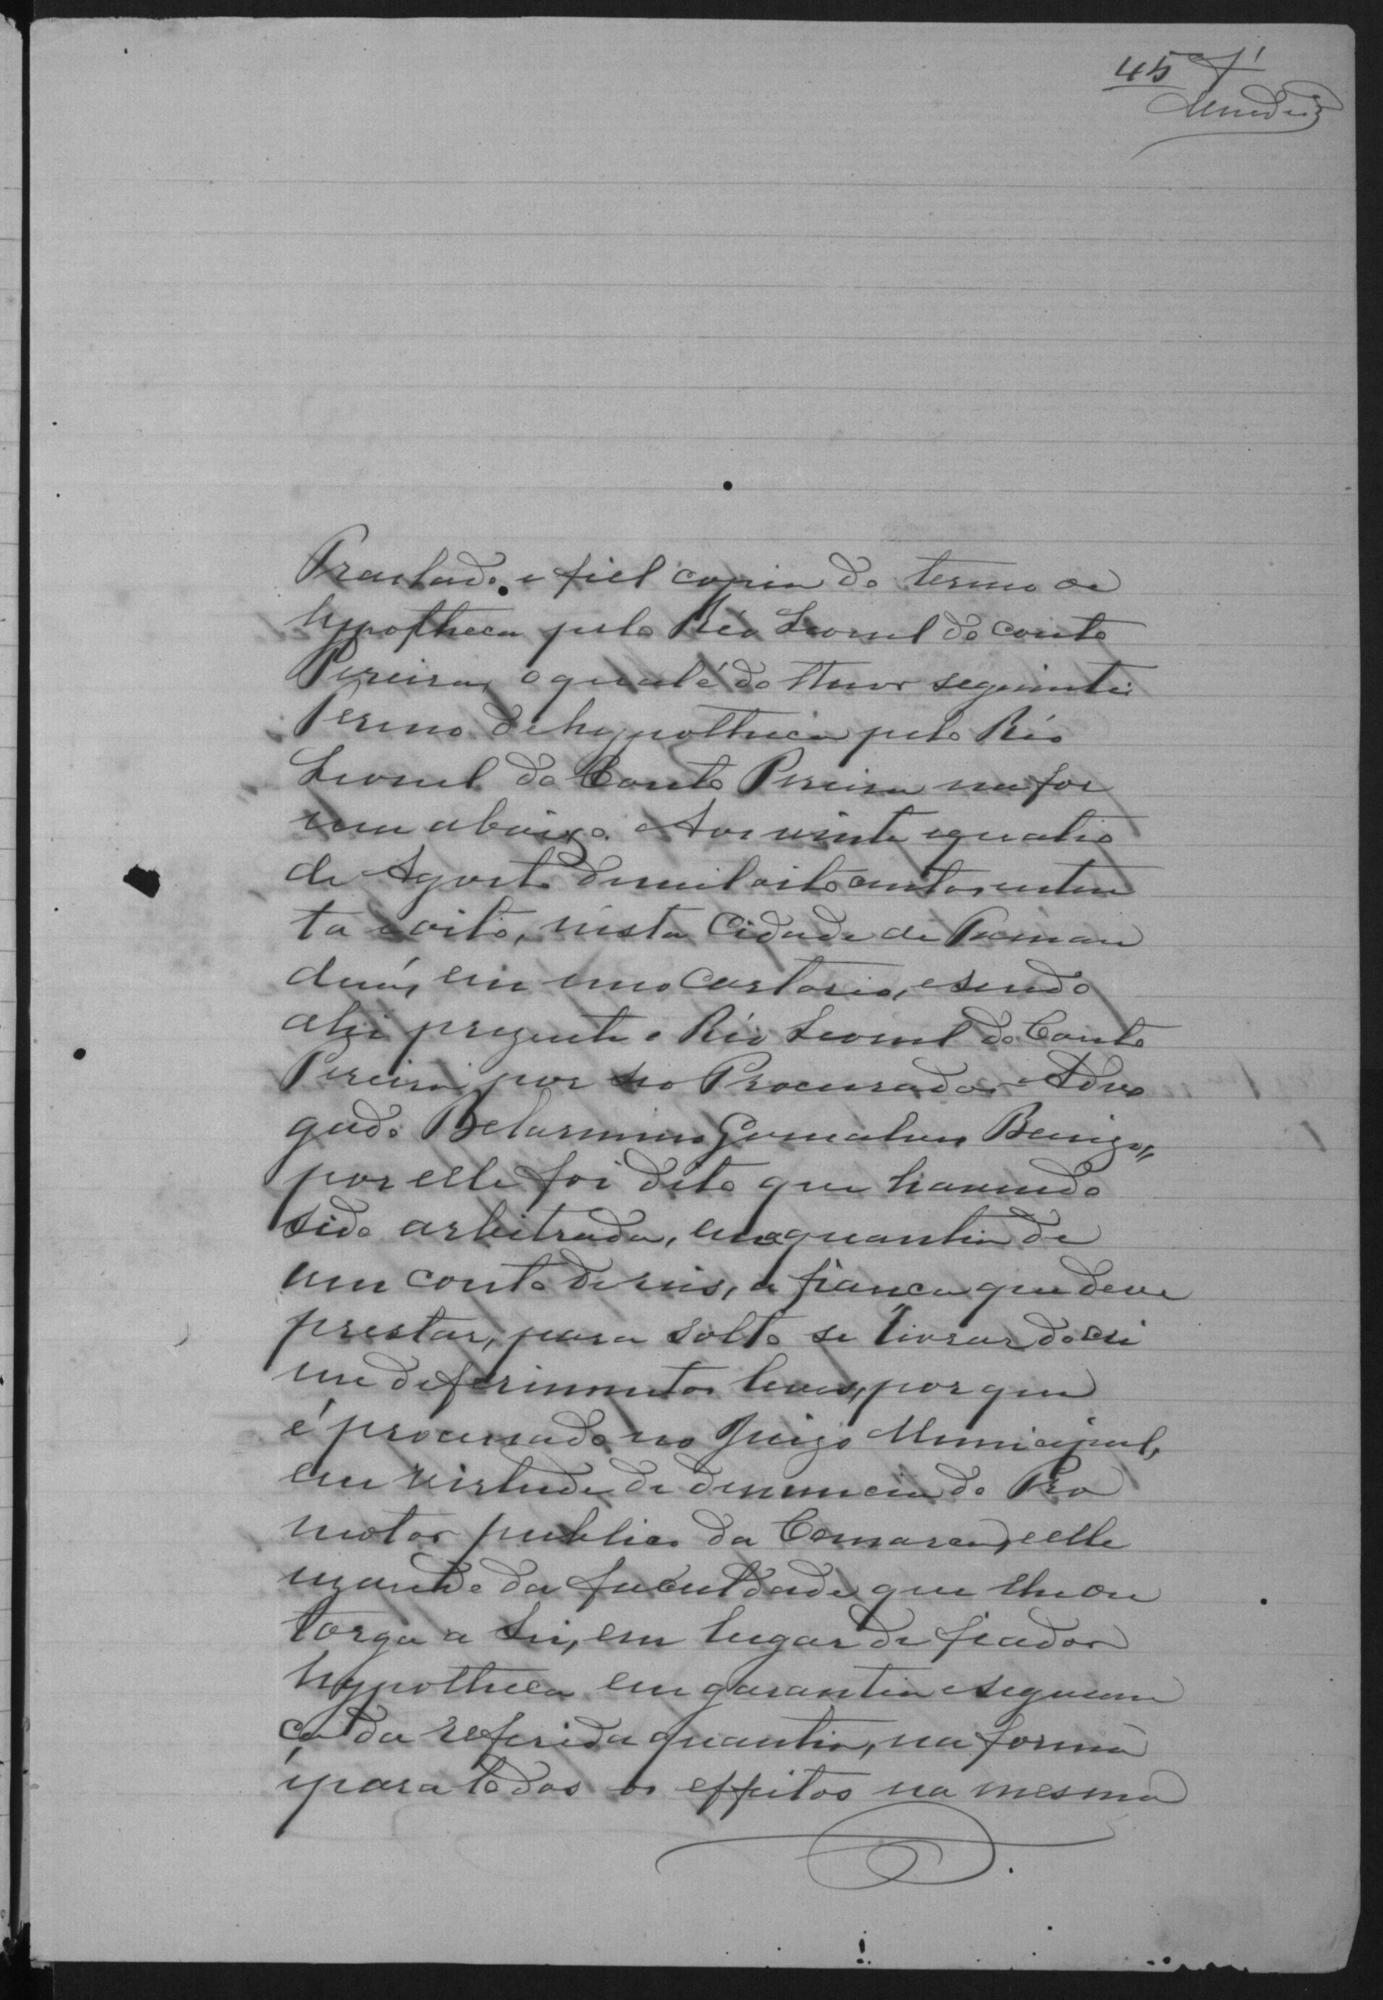 45
Traslado e fiel copia do termo de
hypotheca pelo Réo Leonel do Couto
Pereira, o qual é do theor seguinte:
Termo de hypotheca pelo Réo
Leonel do Couto Pereira na for
ma abaixo. Aos vinte e quatro
de Agosto de mil oito centos e oiten
ta e oito, nesta Cidade de Taman
duá, em meo cartorio, e sendo
ahi prezente o Réo Leonel do Couto
Pereira por seo Procurador Advo
gado Belarmino Gonsalves
por elle foi dito que havendo
sido arbitrada, em a quantia de
um conto de reis, a fiança que deve
prestar, para solto se livrar do cri
me de ferimentos leves, por que
é processado no Juizo Municipal,
em virtude de denuncia do Pro
motor publico da Comarca, e elle
uzando da faculdade que lhe ou
torga a Lei, em lugar de fiador
hypotheca em garantia e seguran
ça da referida quantia, na forma
e para todos os effeitos na mesma